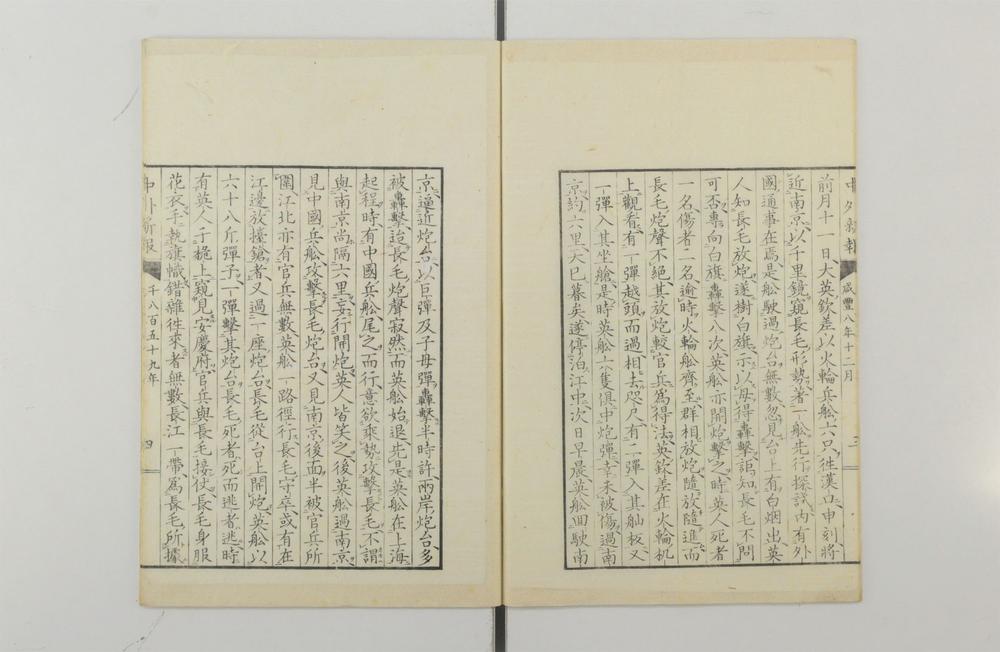 中外新報 咸豐八年十二月 三
前月十一日大英欽差以火輪兵船六只往漢口申刻將
近南京以千里鏡窺長毛形勢著一船先行探試內有外
國通事在焉是船駛過炮台無數忽見台上有白烟出英
人知長毛放炮遂樹白旗示以毋得轟擊詎知長毛不問
可否專向白旗轟擊八次英船亦開炮擊之時英人死者
一名傷者二名逾時火輪船齊至群相放炮隨放隨進而
長毛炮聲不絕其放炮較官兵爲得法英欽差在火輪机
上觀看有一彈越頭而過相去咫尺有二彈入其舢板又
一彈入其坐艙是時英船六隻俱中炮彈幸未被傷過南
京約六里天已暮矣遂停泊江中次日早晨英船回駛南
京逼近炮台以巨彈及子母彈轟擊半時許兩岸炮台多
被轟擊迨長毛炮聲寂然而英船始退先是英船在上海
起程時有中國兵船尾之而行意欲乘勢攻擊長毛不謂
與南京尚隔六里妄行開炮英人皆笑之後英船過南京
見中國兵船攻擊長毛炮台又見南京後面半被官兵所
圍江北亦有官兵無數英船一路徑行長毛守卒或有在
江邊放擡鎗者又過一座炮台長毛從台上開炮英船以
六十八斤彈子一彈擊其炮台長毛死者死而逃者逃時
有英人于桅上窺見安慶府官兵與長毛接仗長毛身服
花衣手執旗幟錯雜往來者無數長江一帶爲長毛所據
中外新報 千八百五十九年 四